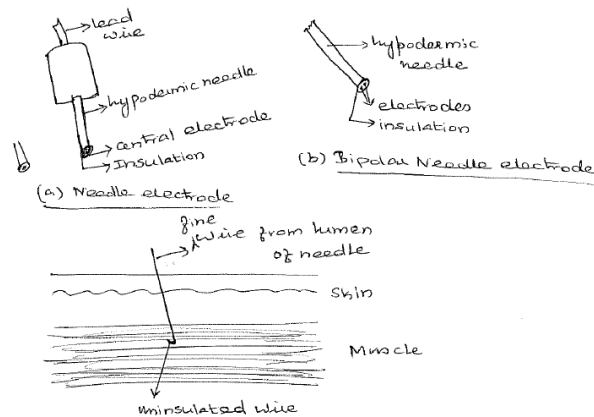 lead
wire
hypodermic needle
central electrode
Insulation
(a) Needle electrode
hypodermic
needle
electrodes
insulation
(b) Bipolar Needle electrode
fine
wire from lumen
of needle
Skin
Muscle
uninsulated wire